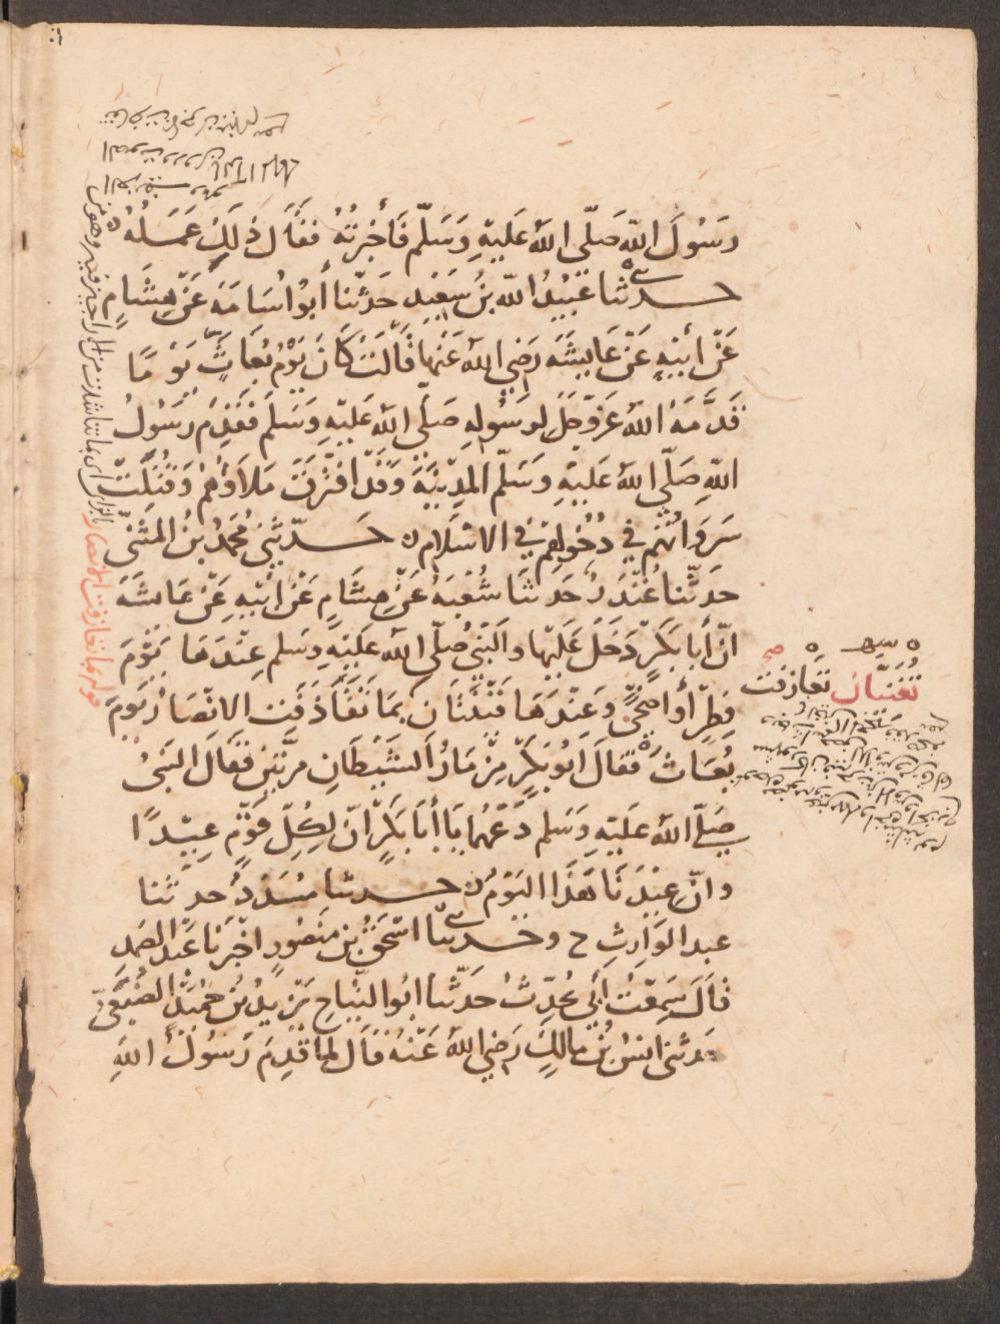 رَسُولَ اللّٰه صَلّى الله عَليهِ وَسَلّم فَأخبرتُهُ فَقَالَ ذٰلِكَ عَمَلُهُ
حدثنا عُبَيْدُ اللّه بنُ سَعِيدٍ حَدّثنا أبوُ اُسَامَةَ عَنْ هِشَامٍ
عَنْ أبيْهِ عَنْ عَايِشَه رَضي الله عَنها قَالَتْ كَانَ يَوْمُ بُعَاثَ يَوْمًا
قَدَّمَهُ اللّهُ عَزّ وَجَلّ لرَسُولِهِ صَلّى الله عَليْهِ وَسَلم فَقَدِمَ رَسُولُ
اللّهِ صَلّى الله عَليْهِ وَسَلّم المَدِيْنَةَ وَقَدْ افترَقَ مَلاَوُهُمْ وَقُتِلَتْ
سَرَوَاتُهُم في دُخُولِهِم في الاسْلاَمِ حَدّثني مُحَمّدُ بْنُ المثَنّى
حَدّثنا غُنْدَرُ حَدثنَا شُعْبَةُ عَنْ هِشَامٍ عَنْ ابيْهِ عَنْ عَايشَةَ
انّ أبَا بَكْرٍ دَخَلَ عَلَيْهَا والنبيُّ صَلّى الله عَليْهِ وَسَلم عِنْدَهَا يَوْمَ
فِطْرٍ أو اضحًى وَعنْدَهَا قَيْنَتَانِ بمَا تَقَاذَفَت الانْصَارُ يَومَ
بُعَاثَ فقالَ ابُو بَكْرٍ مِزْمَارُ الشّيْطَانِ مرّتَيْنِ فَقَالَ النبيُّ
صَلّى الله عَليْهِ وَسَلم دَعْهُما يَا أبَا بَكرٍ انّ لِكُلِّ قَوْمٍ عِيْدًا
وانّ عِيْدَنَا هَذَا اليَوْمُ حدثنا مُسَدَّدٌ حدثنا
عبد الوَارِثِ ح وحدثنا اسْحَقُ بن مَنصُورٍ اخْبَرَنَا عَبْدُ الصَمَدِ
قَالَ سَمِعْتُ أبي يُحَدّثُ حَدّثنا ابُو التيّاحِ يَزيدُ بْنُ حُمَيْدٍ الضُبَعيُّ
حَدثني انسُ بْنُ مَالكٍ رَضِي اللهُ عَنْهُ قَالَ لمّا قَدِمَ رَسُولُ اللهِ
تُغَنّيَان تَعَازَفَت
صح
قوله بما تعازفت الانصار